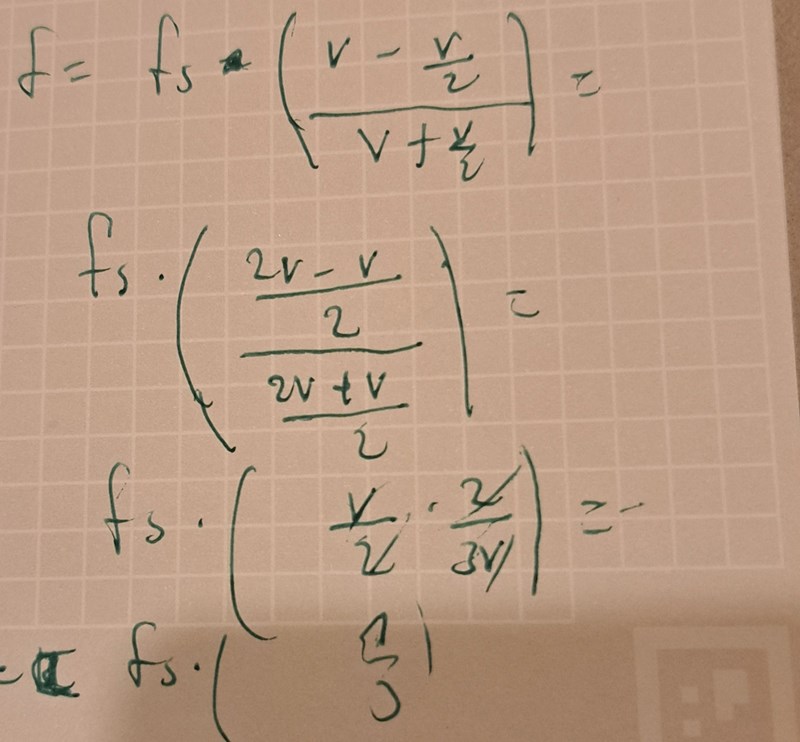 f = fs · ( (v - v/2) / (v + v/2) ) =
fs · ( ((2v - v)/2) / ((2v + v)/2) ) =
fs · ( v/2 · 2/3v ) =
= fs · (